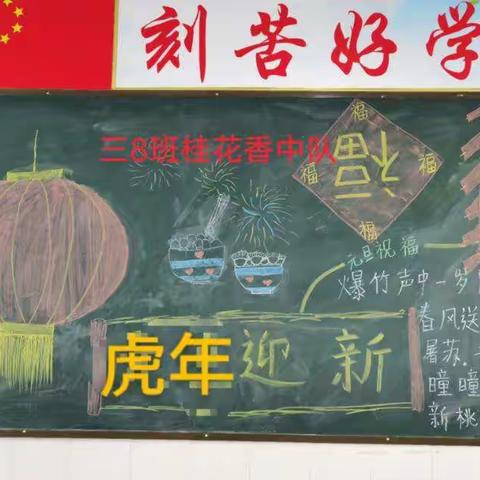 刻苦好学
三8班桂花香中队
福
福
福
福
福
元旦祝福
爆竹声中一岁
春风送
屠苏
曈曈
新桃
虎年迎新